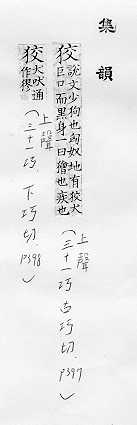 集韻
狡
說文少狗也匈奴地有狡犬
巨口而黑身一曰獪也疾也
(上聲 三十一巧 古巧切. P397)
狡
犬吠通
作
(上聲 三十一巧 下巧切. P398)